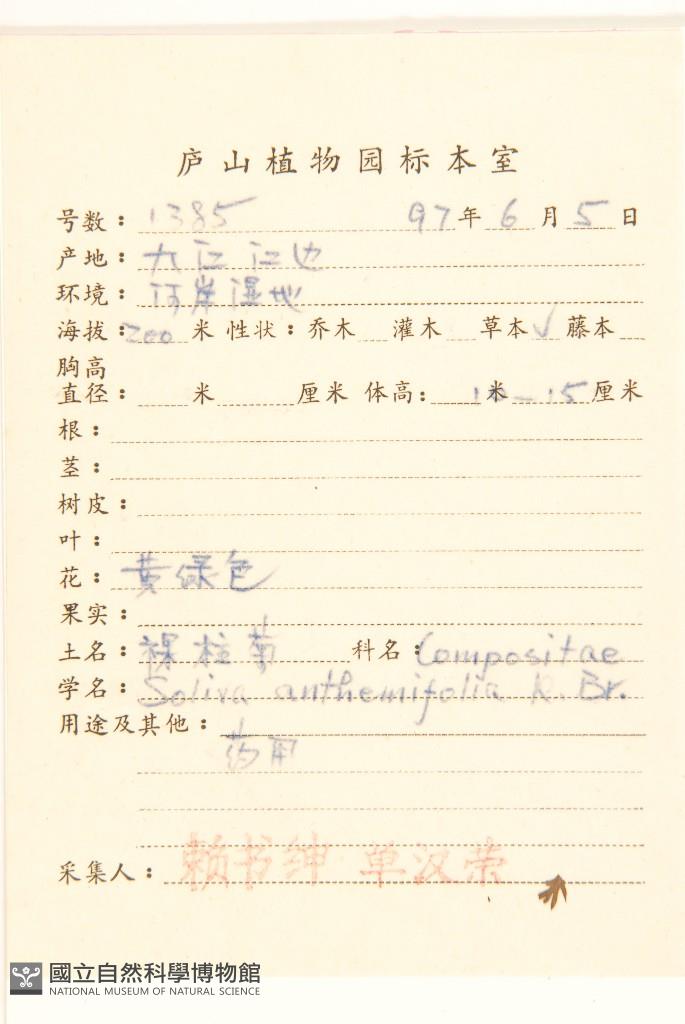 庐山植物园标本室
号数：1385 97年6月5日
产地：九江江边
环境：河岸湿地
海拔：200米 性状：乔木 灌木 草本√ 藤本
胸高
直径： 米 厘米 体高： 米10—15厘米
根：
茎：
树皮：
叶：
花：黄绿色
果实：
土名：裸柱菊 科名：Compositae
学名：Soliva anthemifolia R. Br.
用途及其他：
药用
采集人：赖书绅 单汉荣
國立自然科學博物館
NATIONAL MUSEUM OF NATURAL SCIENCE